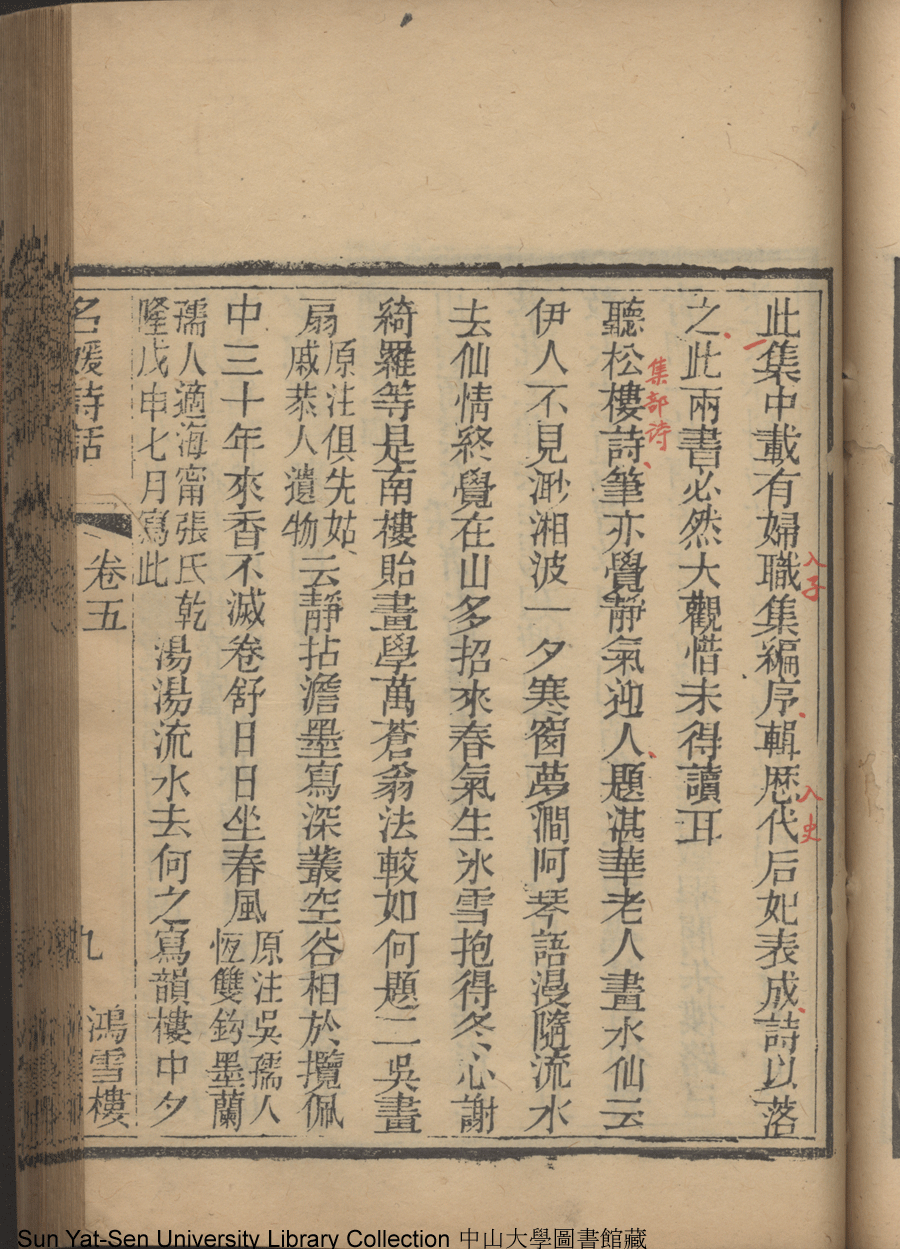 此集中載有婦職集編序輯歷代后妃表成詩以落
入子
入史
之此兩書必然大觀惜未得讀耳
集部诗
聽松樓詩筆亦覺靜氣迎人題湛華老人畫水仙云
伊人不見渺湘波一夕寒窗夢澗阿琴語漫隨流水
去仙情終覺在山多招來春氣生氷雪抱得冬心謝
綺羅等是南樓貽畫學萬蒼翁法較如何題二吳畫
扇原注俱先姑戚恭人遺物云靜拈澹墨寫深叢空谷相於攬佩
中三十年來香不滅卷舒日日坐春風原注吳孺人恆雙鈎墨蘭
孺人適海甯張氏乾隆戊申七月寫此湯湯流水去何之寫韻樓中夕
名媛詩話 卷五 九 鴻雪樓
Sun Yat-Sen University Library Collection 中山大學圖書館藏